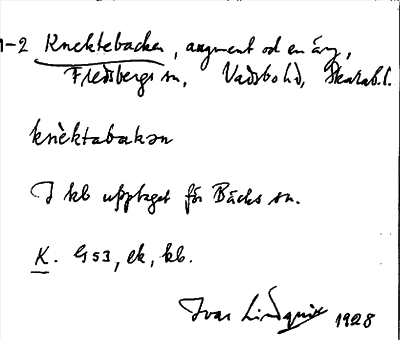 1-2 Knektebacken, augment od en äng,
Fredsbergs sn, Vadsbo hd, Skarab.l.
knèktabakən
I kb upptaget för Bäcks sn.
K. G53, ek, kb.
Ivar Lindquist 1928